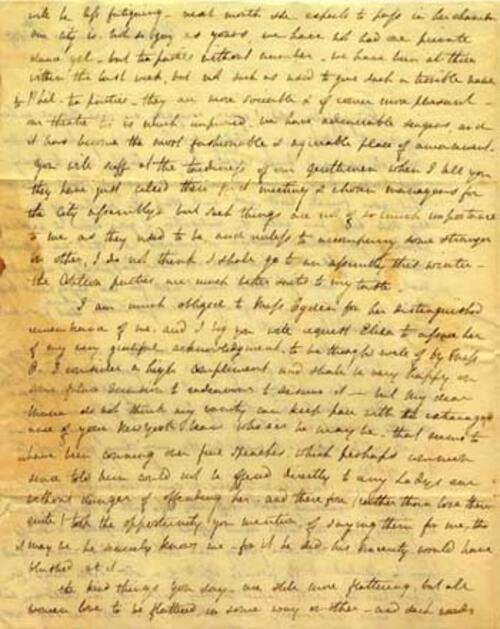 will be less fatiguing - next month she expects to pass in her chamber
our city is not so gay as yours, we have not had one private
dance yet - but tea parties without number - we have been at three
within the last week, but not such as used to give such a terrible name
to Phil- tea parties - they are more sociable & of course more pleasant -
our theatre is much improved, we have admirable singers, and
it has become the most fashionable & agreeable place of amusement.
You will scoff at the tardiness of our gentlemen when I tell you
they have just called their first meeting & chosen managers for
the city assemblys but such things are not of so much importance
to me as they used to be, and unless to accompany some stranger
or other, I do not think I shall go to an assembly this winter -
the Cotilion parties are much better suited to my taste
I am much obliged to Miss for her distinguished
remembrance of me, and I beg you will request Eliza to assure her
of my very grateful acknowledgment, to be thought well of by Miss
B. I consider a high compliment, and shall be very happy on
some future occasion to endeavour to deserve it - but my dear
do not think my vanity can keep pace with the extravagance
of your New York beau who ever he may be - that seems to
have been conning over fine speeches, which perhaps
told him could not be offered directly to any Ladys ear
without danger of offending her, and therefore (rather than lose them
quite) took the opportunity you mention of saying them for me, tho
it may be, he scarcely knows me - for if he did - his sincerity would have
blushed at it -
the kind things you say - are still more flattering, but all
women love to be flattered in some way or other - and such words